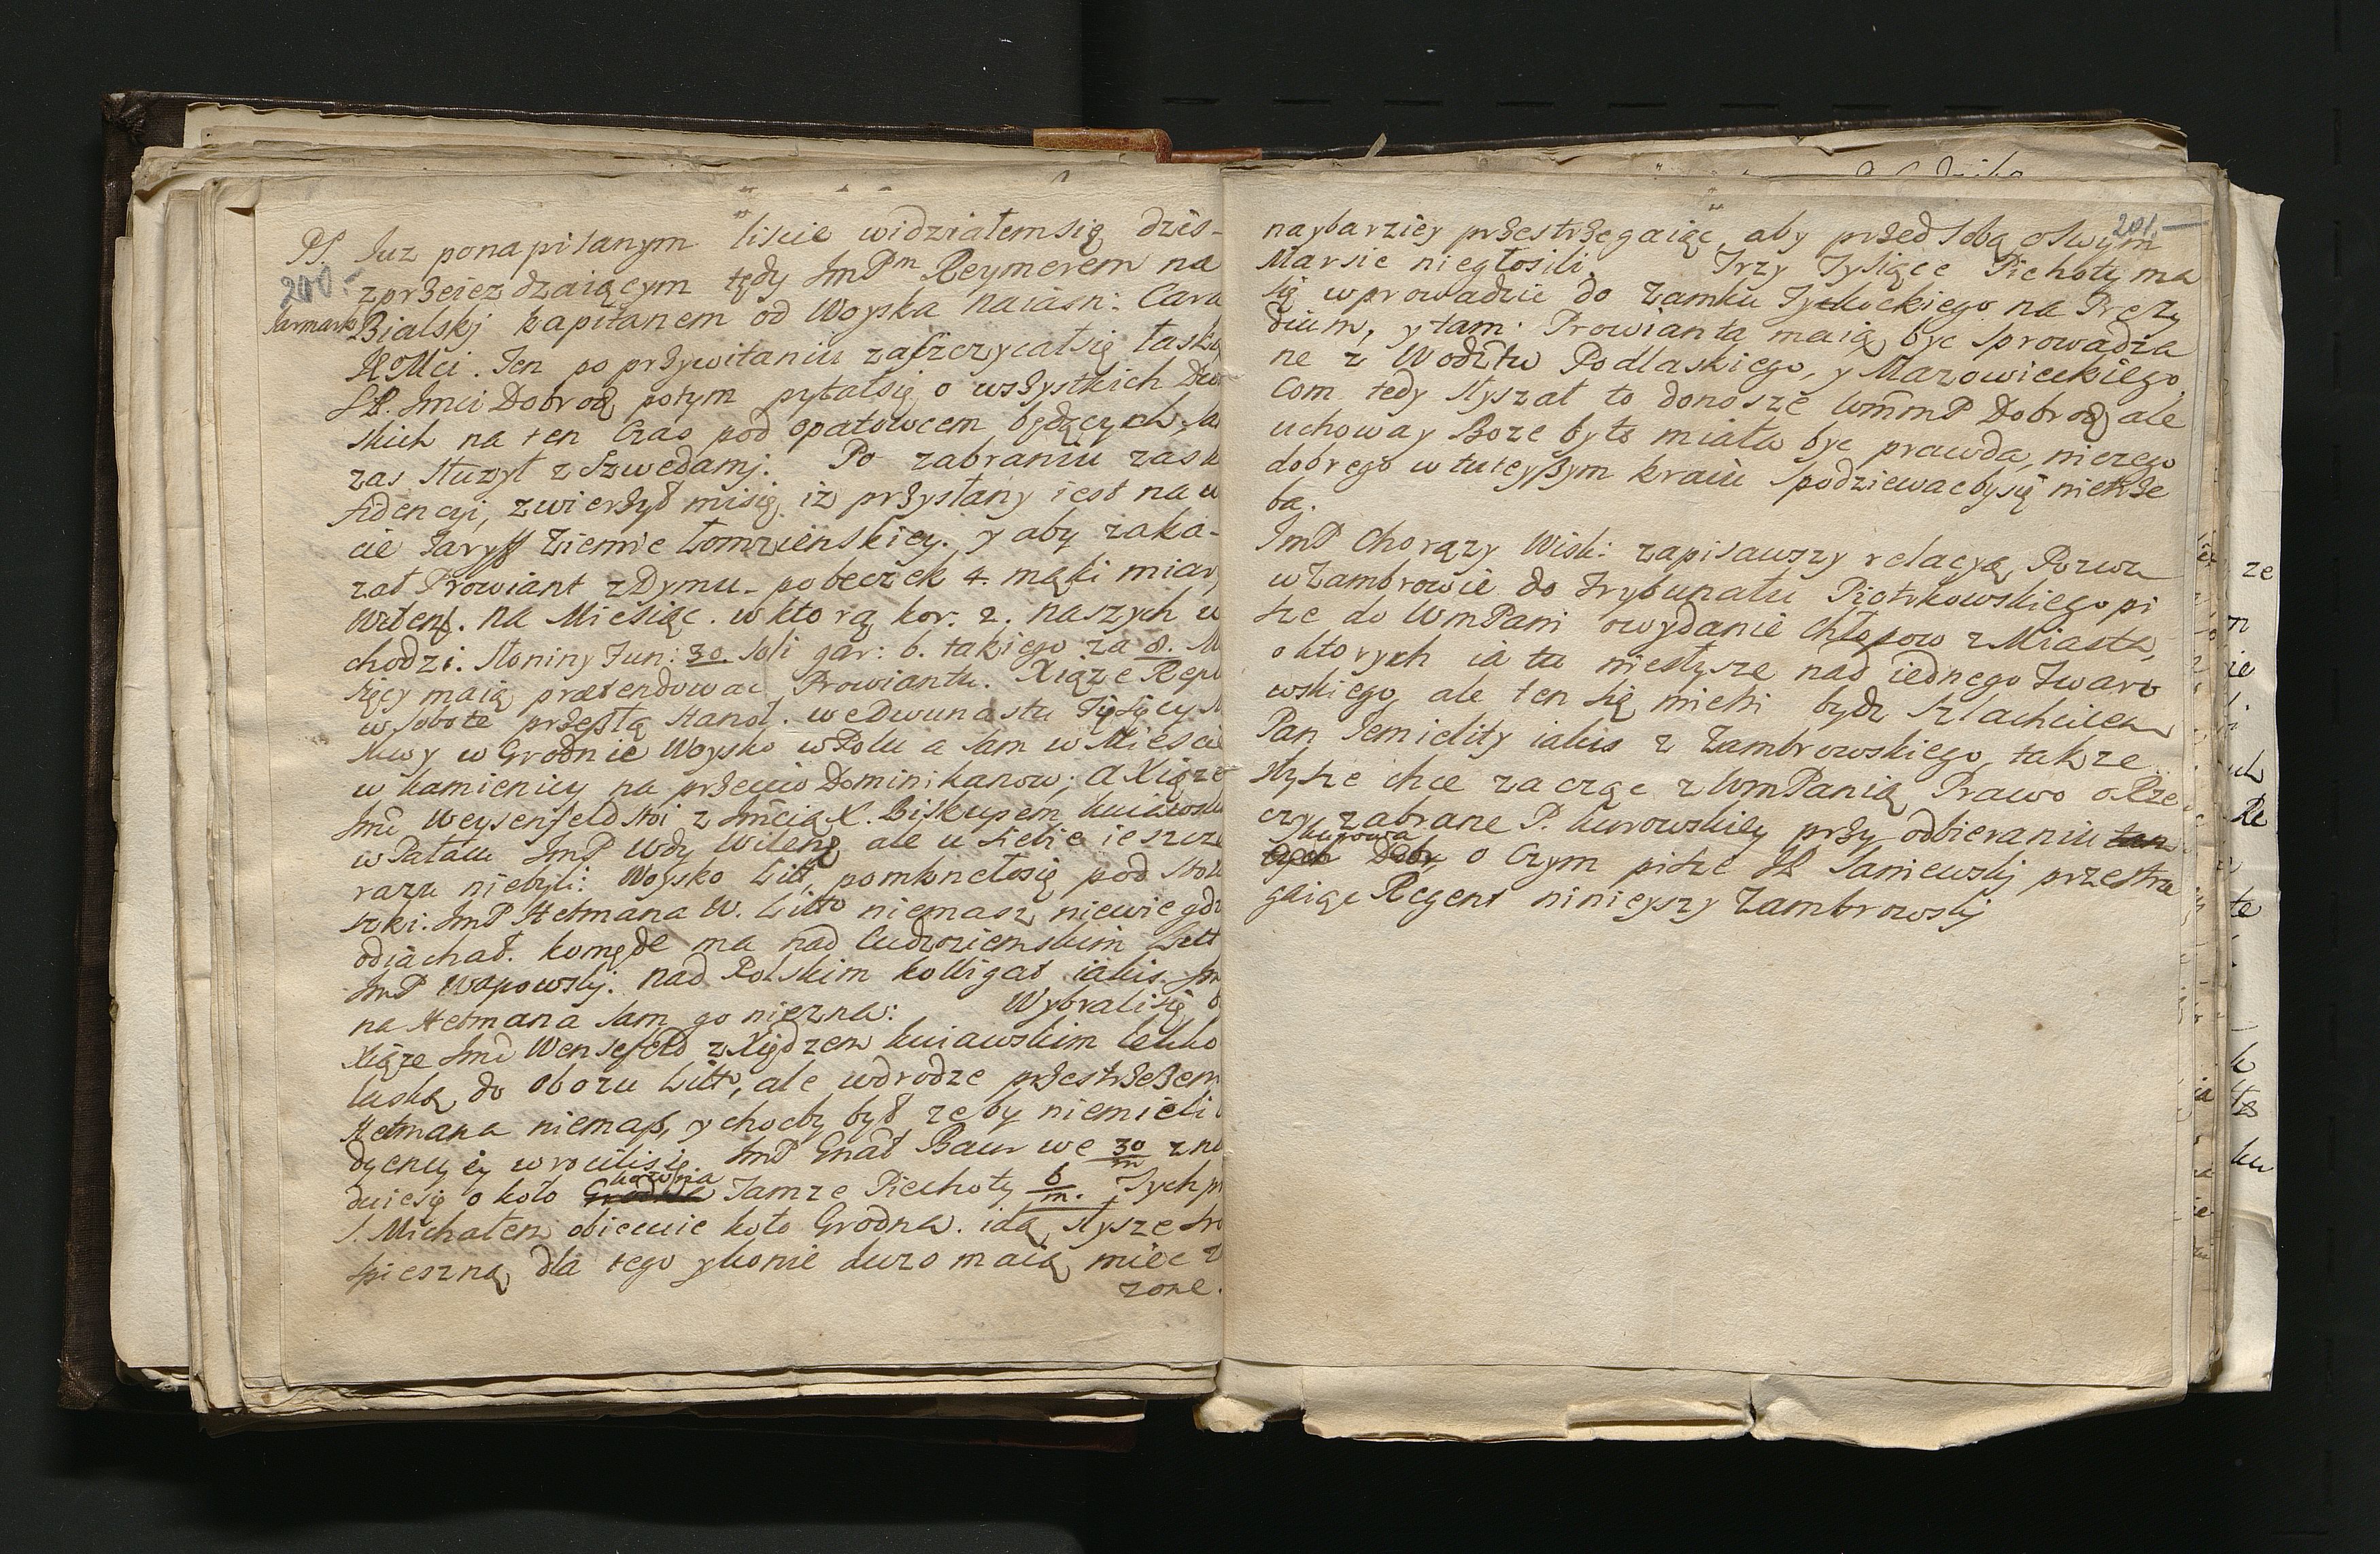 PS. Iuz ponapisanym liscie widziałemsię dzis-
200.
zprzeiezdzaiącym tędy ImPm Reymerem na
Jarmark Bialskj kapitanem od Woyska naiasn: Cara
JEMći. Ten po przywitaniu zaszczycałsię łaską
JP. Imci Dobrodz potym pytałsię o wszystkich Dwo
skich na ten Czas pod Opatowcem będących, sa
zas słuzył z Szwedamj. Po zabraniu zas k
fidencyi, zwierzył misię iz przysłany iest na w
cie Taryff Ziemie Łomzienskiey. y aby zaka-
zał Prowiant z Dymu pobeczek 4. mąki miar,
Wilens. na Miesiąc. w ktorą kor: 2. naszych w
chodzi. słoniny Fun: 30. soli gar: 6. takiego za 8. M
sięcy maią prætendowac Prowiantu. Xiąze Repn
w sobote przeszłą stanoł. we Dwunastu Tysięcy
w Grodnie Woysko w Polu a sam w Miescie
w kamienicy na przeciw Dominikanow; a Xiąze
Imć Weysenfeld stoi z Imcią X. Biskupem kuiawskim
w Pałacu ImP Wdy Wilenz ale u siebie ieszcze
razu niebyli: Woysko Litt, pomknełosię pod
ImP Hetmana W. Litto niemasz niewie gdz
odiachał. komędę ma nad Cudzoziemskim Litt
ImP Wapowskj. nad Polskim kolligat iakis Im
na Hetmana sam go niezna: Wybralisię
Xiąze Imć Wensefeld z Xiędzem kuiawskim
laską do obozu Litt, ale wdrodze przestrzezem
Hetmana niemasz, y chocby był zeby niemieli
dyencyey wrocilisię. ImP Gnał Baur we 30/m zna
duiesię o koło Grodna kowna Tamze Piechoty 6/m. Tych p
S. Michałem obiecuie koło Grodna. idą, słysze
spieszną, dla tego y konie duzo maią miec
zone.
201.
naybarziey przestrzegaiąc, aby przed sobą o swym
Marsie niegłosili. Trzy Tysiące Piechoty ma
się wprowadzic do Zamku Tykockiego na Prezy
dium, y tam Prowianta maią byc sprowadza
ne z Wodztw Podlaskiego, y Mazowieckiego
Com tedy słyszał to donoszę WmmP Dobrodz ale
uchoway Boze byto miała byc prawda, niczego
dobrego w tuteyszym kraiu spodziewacbysię nietrze
ba.
ImP Chorązy Wisk: zapisawszy relacyą Pozwu
w Zambrowie do Trybunału Piotrkowskiego pi
sze do WmPani o wydanie Chłopow z Miasta,
o ktorych ia tu niesłysze nad iednego Twaro
wskiego, ale ten się mieni bydz szlachcicem
Pan Jemielity iakis z Zambrowskiego, takze
słysze chce zacząc z WmPanią Prawo o Rze
czy zabrane P. kurowskiey przy odbieraniu
Skupowa Dóbr, o Czym pisze JP Janiewskj przestrze
gaiąc Regent ninieyszy Zambrowskj